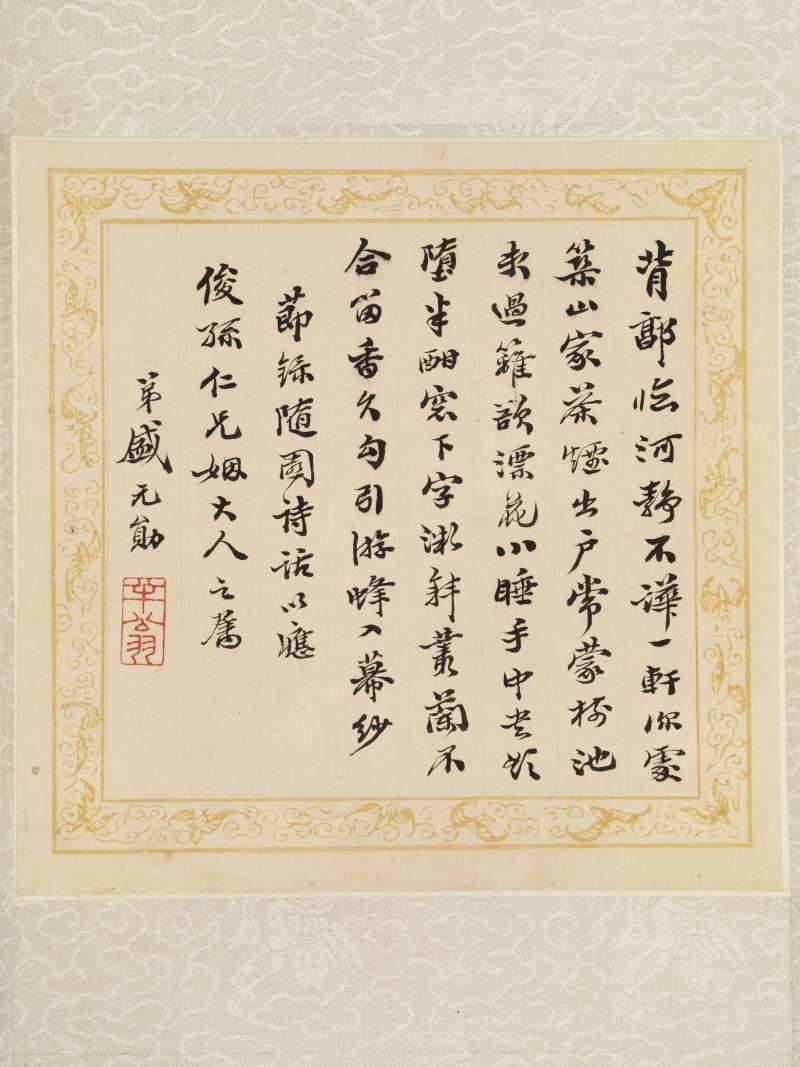 背郭臨河靜不譁一軒深處
築山家茶煙出戶常蒙樹池
水過籬欲漂花小睡手中書
墮半酣窓下字漸斜叢蘭不
合留香久勾引游蜂入幕紗
節錄隨園詩話以應
俊孫仁兄姻大人之屬
弟盛元勛